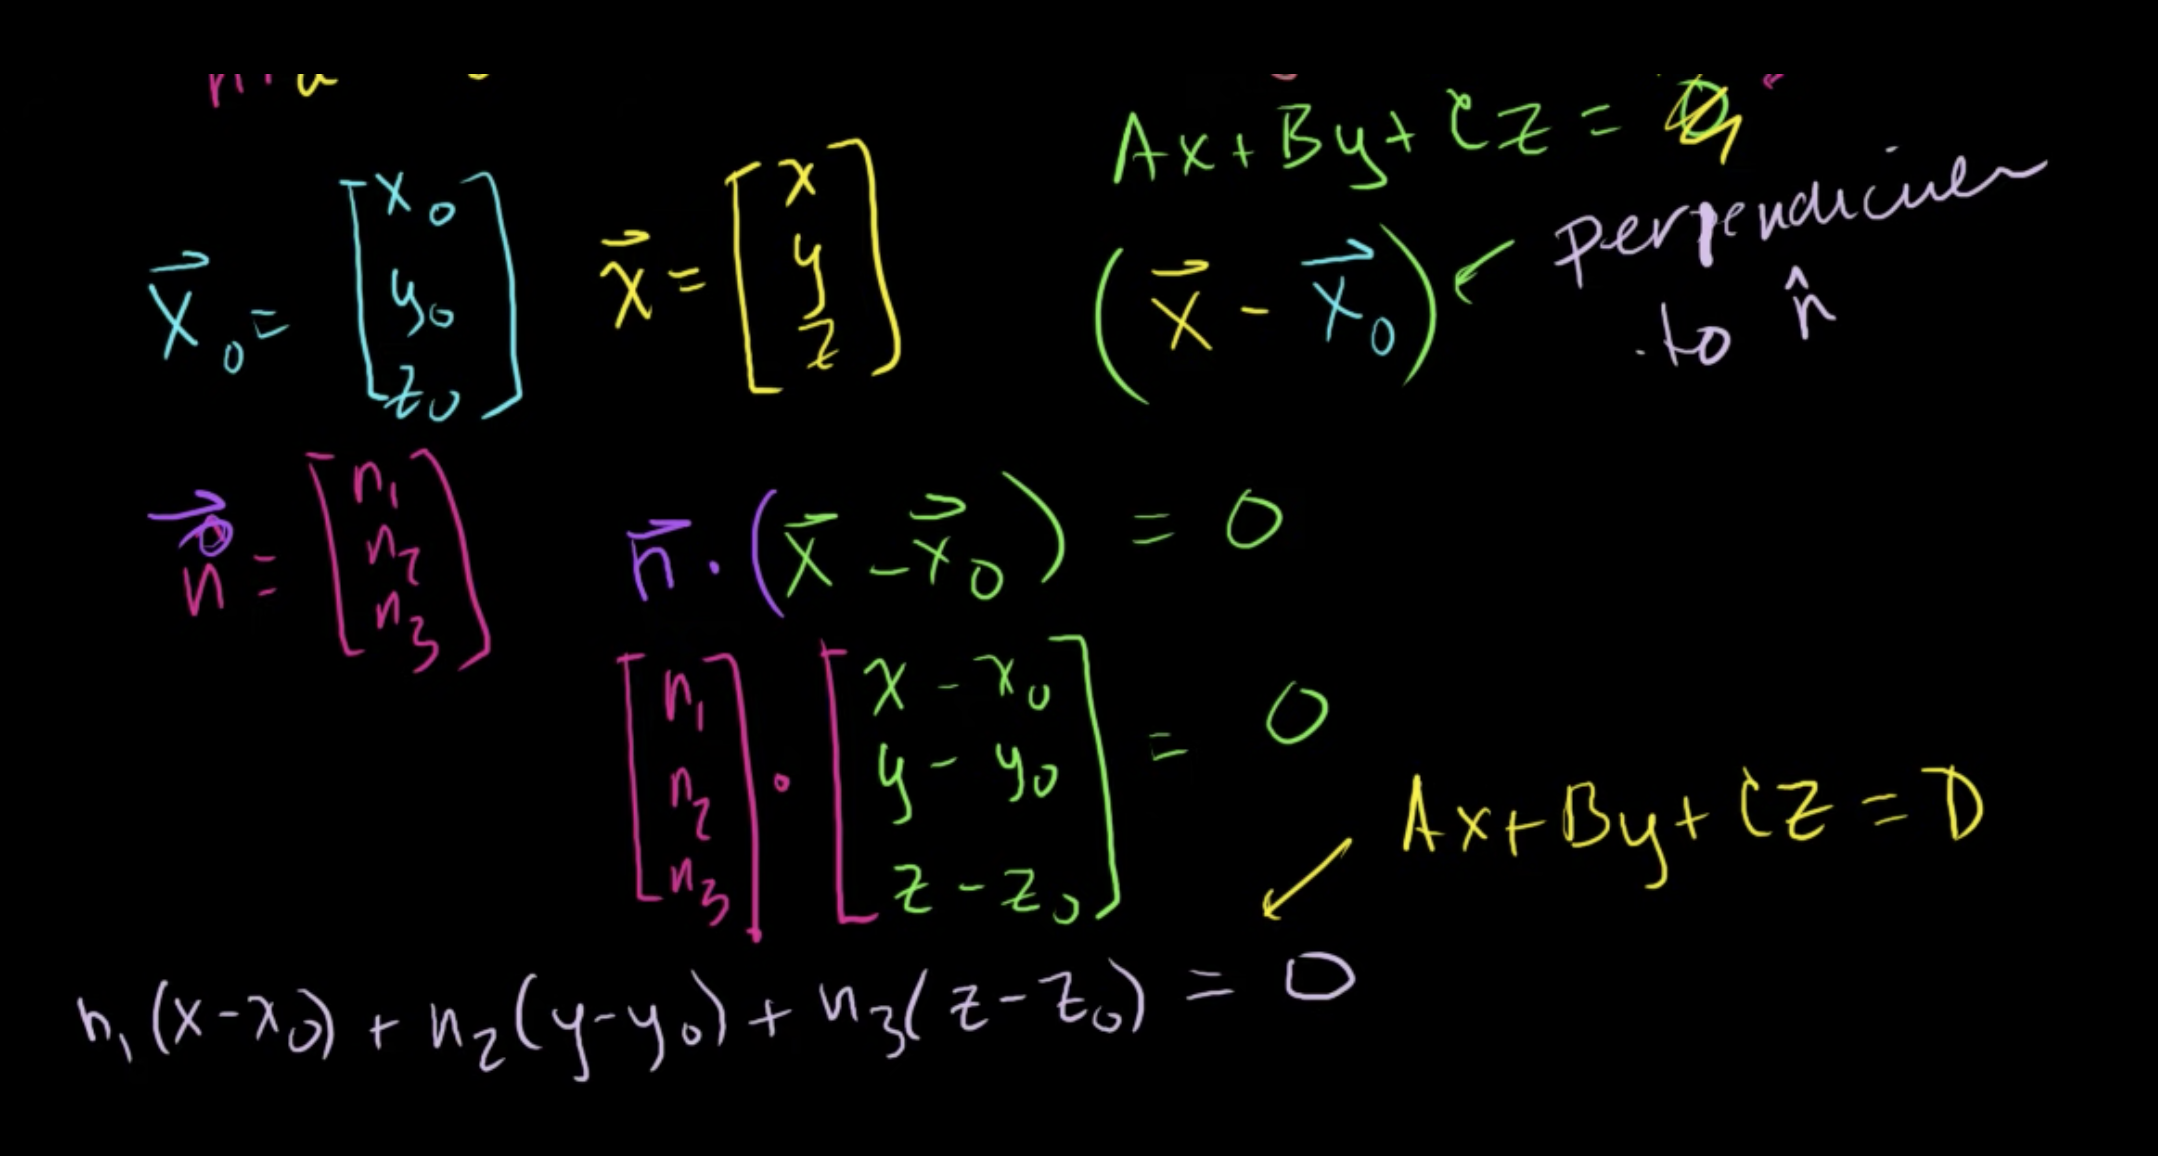 Ax + By + Cz =
x⃗₀ = [x₀ y₀ z₀]
x⃗ = [x y z]
(x⃗ - x⃗₀) ← perpendicular
to n̂
n⃗ = [n₁ n₂ n₃]
n⃗ · (x⃗ - x⃗₀) = 0
[n₁ n₂ n₃] · [x - x₀ y - y₀ z - z₀] = 0
Ax + By + Cz = D
n₁(x - x₀) + n₂(y - y₀) + n₃(z - z₀) = 0